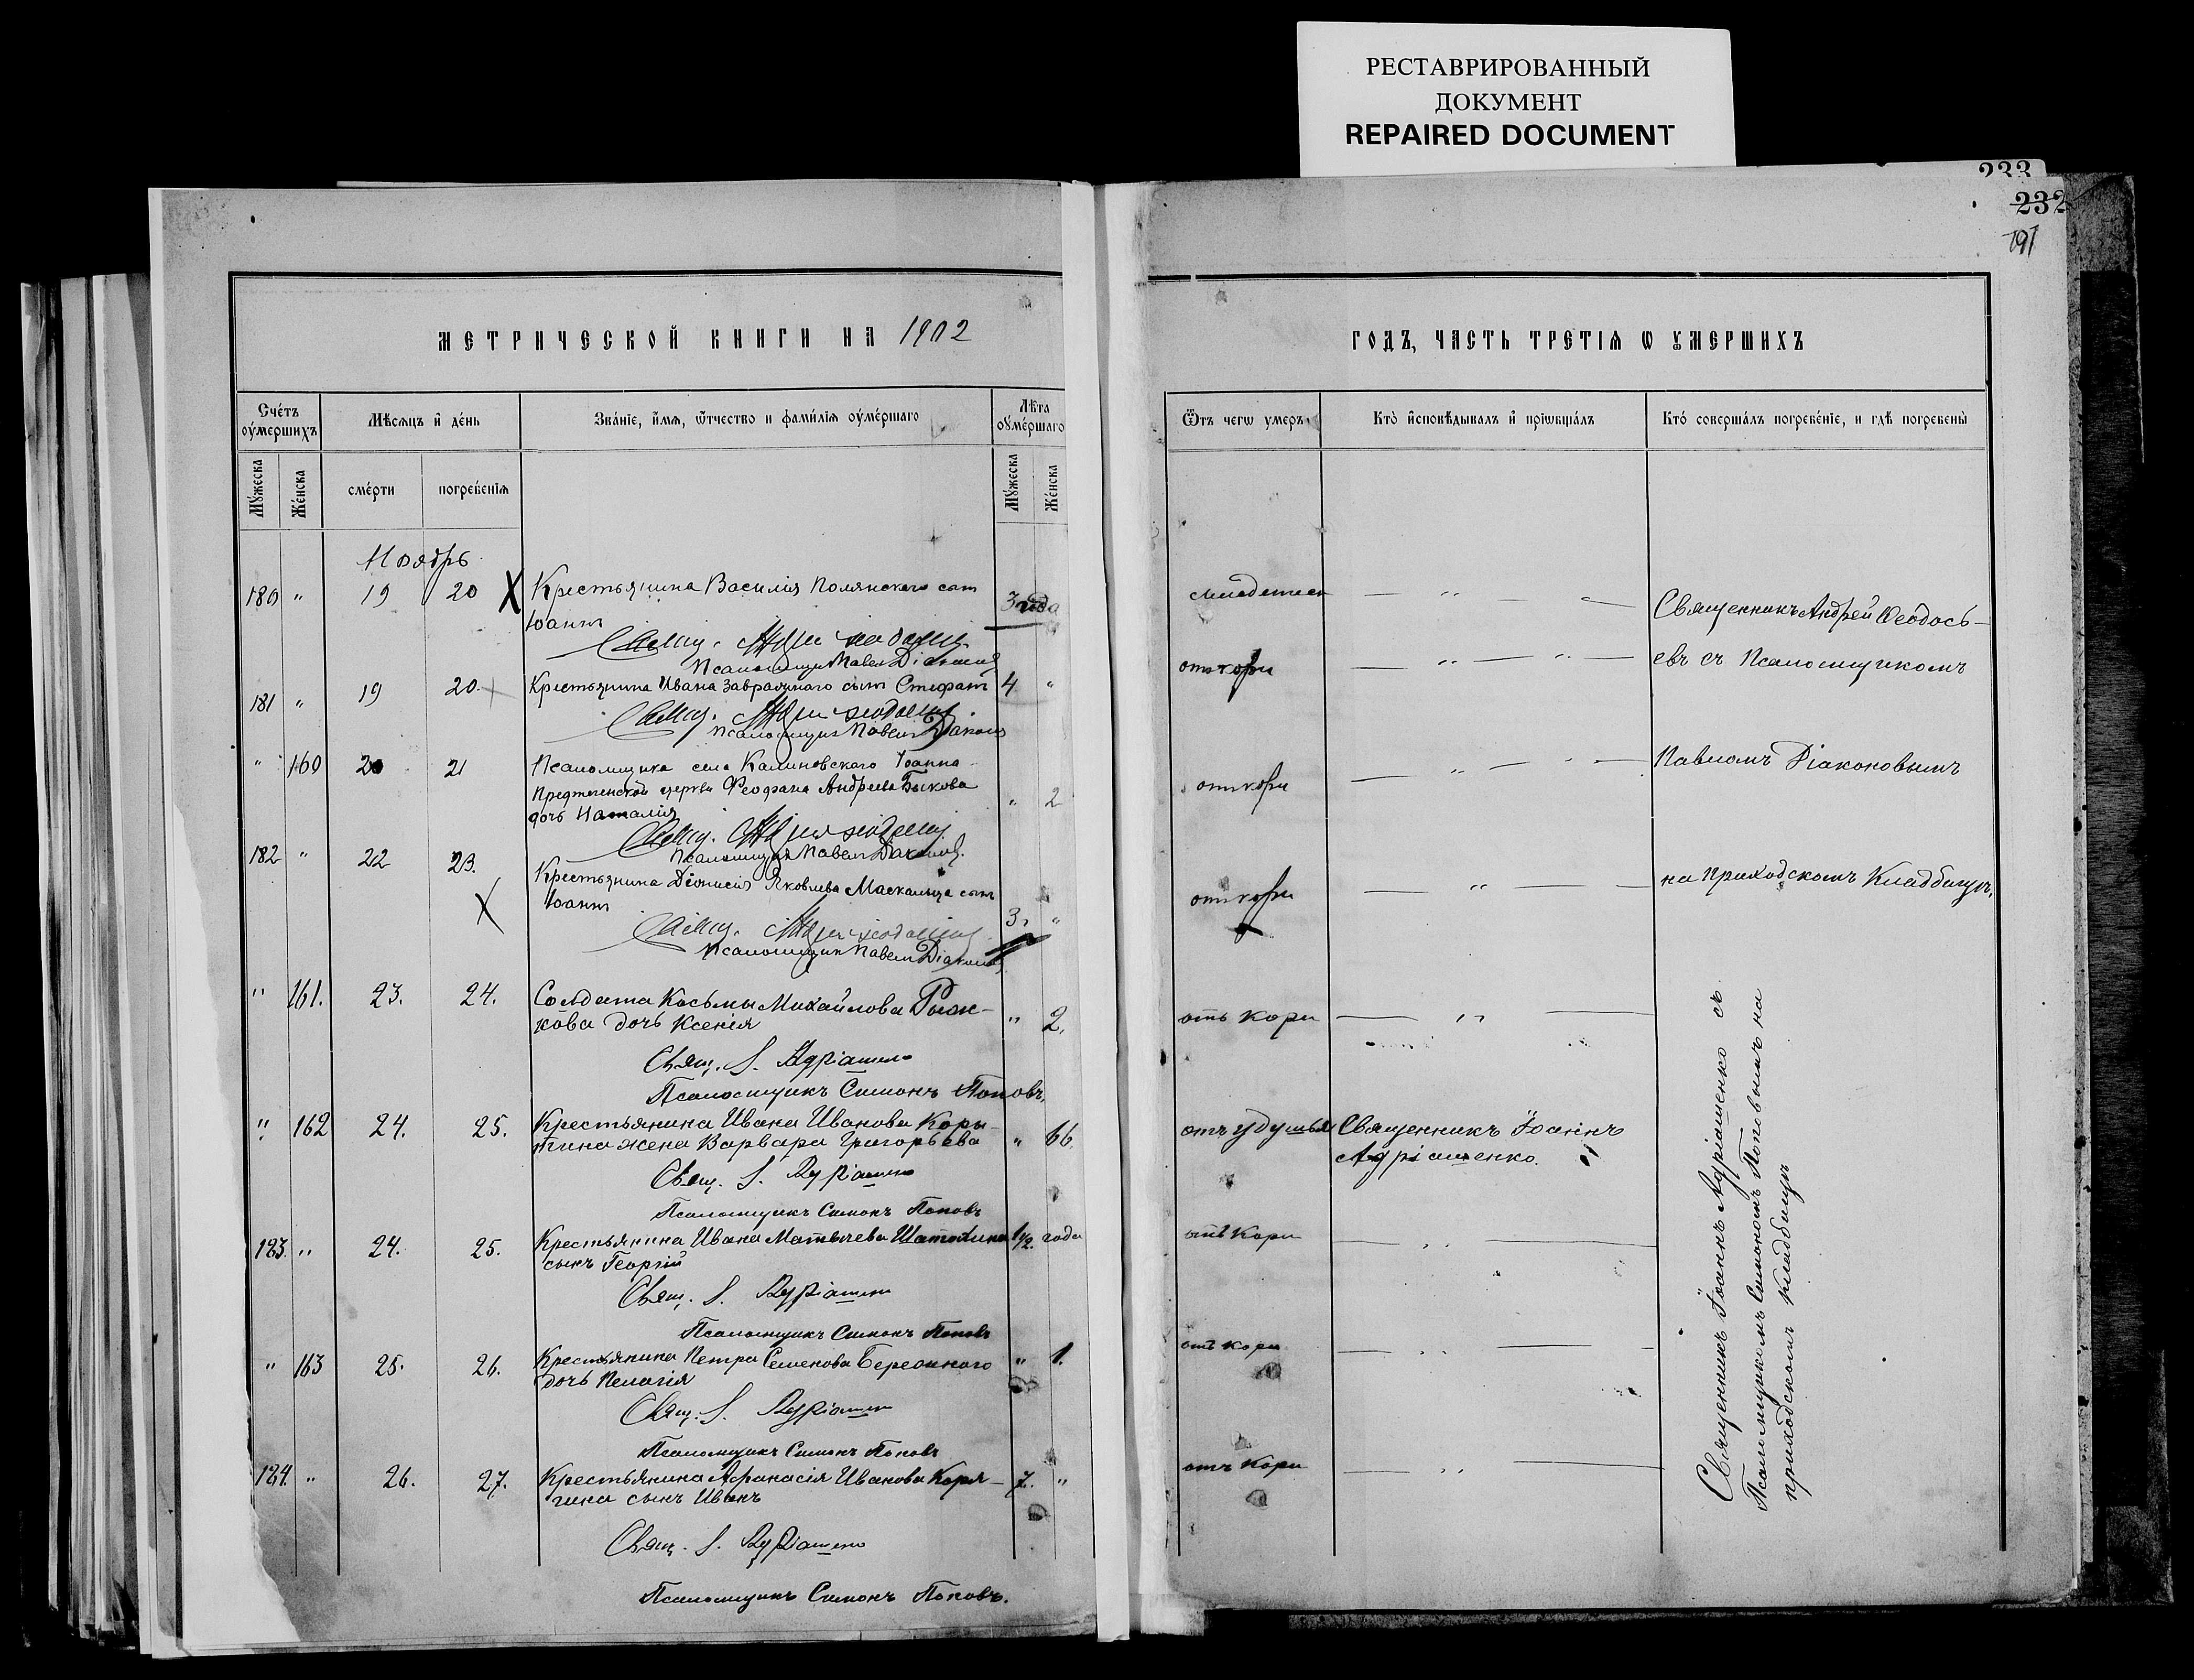 РЕСТАВРИРОВАННЫЙ
ДОКУМЕНТ
REPAIRED DOCUMENT
233
232
191
МЕТРИЧЕСКОЙ КНИГИ НА 1902
Счетъ оумершихъ
Мѣсяцъ и день
Званіе, имя, ѿтчество и фамилія оумершаго
Лѣта оумершаго
Мужеска
Женска
смерти
погребенія
Мужеска
Женска
Ноябрь
180 " 19 20 Крестьянина Василія Полянскаго сынъ 3 года
Іоаннъ
Псаломщикъ Павелъ Діаконовъ
181 " 19 20. Крестьянина Ивана Завражнаго сынъ Стефанъ 4 "
Псаломщикъ Павелъ Діаконовъ
" 160 20 21 Псаломщика села Калиновскаго Іоанно-
Предтеченской церкви Феофана Андреева Быкова " 2
дочь Наталія
Псаломщикъ Павелъ Діаконовъ.
182 " 22 23. Крестьянина Діонисія Яковлева Маскальца сынъ
Іоаннъ 3. "
Псаломщикъ Павелъ Діаконовъ
" 161. 23. 24. Солдата Косьмы Михайлова Рыж-
кова дочь Ксенія " 2.
Свящ. І. Адріашенко
Псаломщикъ Симонъ Поповъ.
" 162 24. 25. Крестьянина Ивана Иванова Коры-
тина жена Варвара Григорьева " 66.
Свящ. І. Адріашенко
Псаломщикъ Симонъ Поповъ
183. " 24. 25. Крестьянина Ивана Матвѣева Шатохина 1 1/2. года
сынъ Георгій
Свящ. І. Адріашенко
Псаломщикъ Симонъ Поповъ
" 163 25. 26. Крестьянина Петра Семенова " 1.
дочь Пелагія
Свящ. І. Адріашенко
Псаломщикъ Симонъ Поповъ
184. " 26. 27. Крестьянина Афанасія Иванова Коря- 7. "
гина сынъ Иванъ
Свящ. І. Адріашенко
Псаломщикъ Симонъ Поповъ.
ГОДЪ, ЧАСТЬ ТРЕТІЯ Ѡ УМЕРШИХЪ
Ѿтъ чегѡ умеръ
Кто исповѣдывалъ и прїѡбщалъ
Кто совершалъ погребеніе, и гдѣ погребены
Священникъ Андрей Ѳеодось-
отъ кори
евъ съ Псаломщикомъ
отъ кори
Павломъ Діаконовымъ
отъ кори
на приходскомъ Кладбищѣ.
отъ кори
отъ удушья Священникъ Іоаннъ
Адріашенко.
отъ Кори
отъ кори
отъ Кори
Священникъ Іоаннъ Адріашенко съ
Псаломщикомъ Симономъ Поповымъ на
приходскомъ кладбищѣ